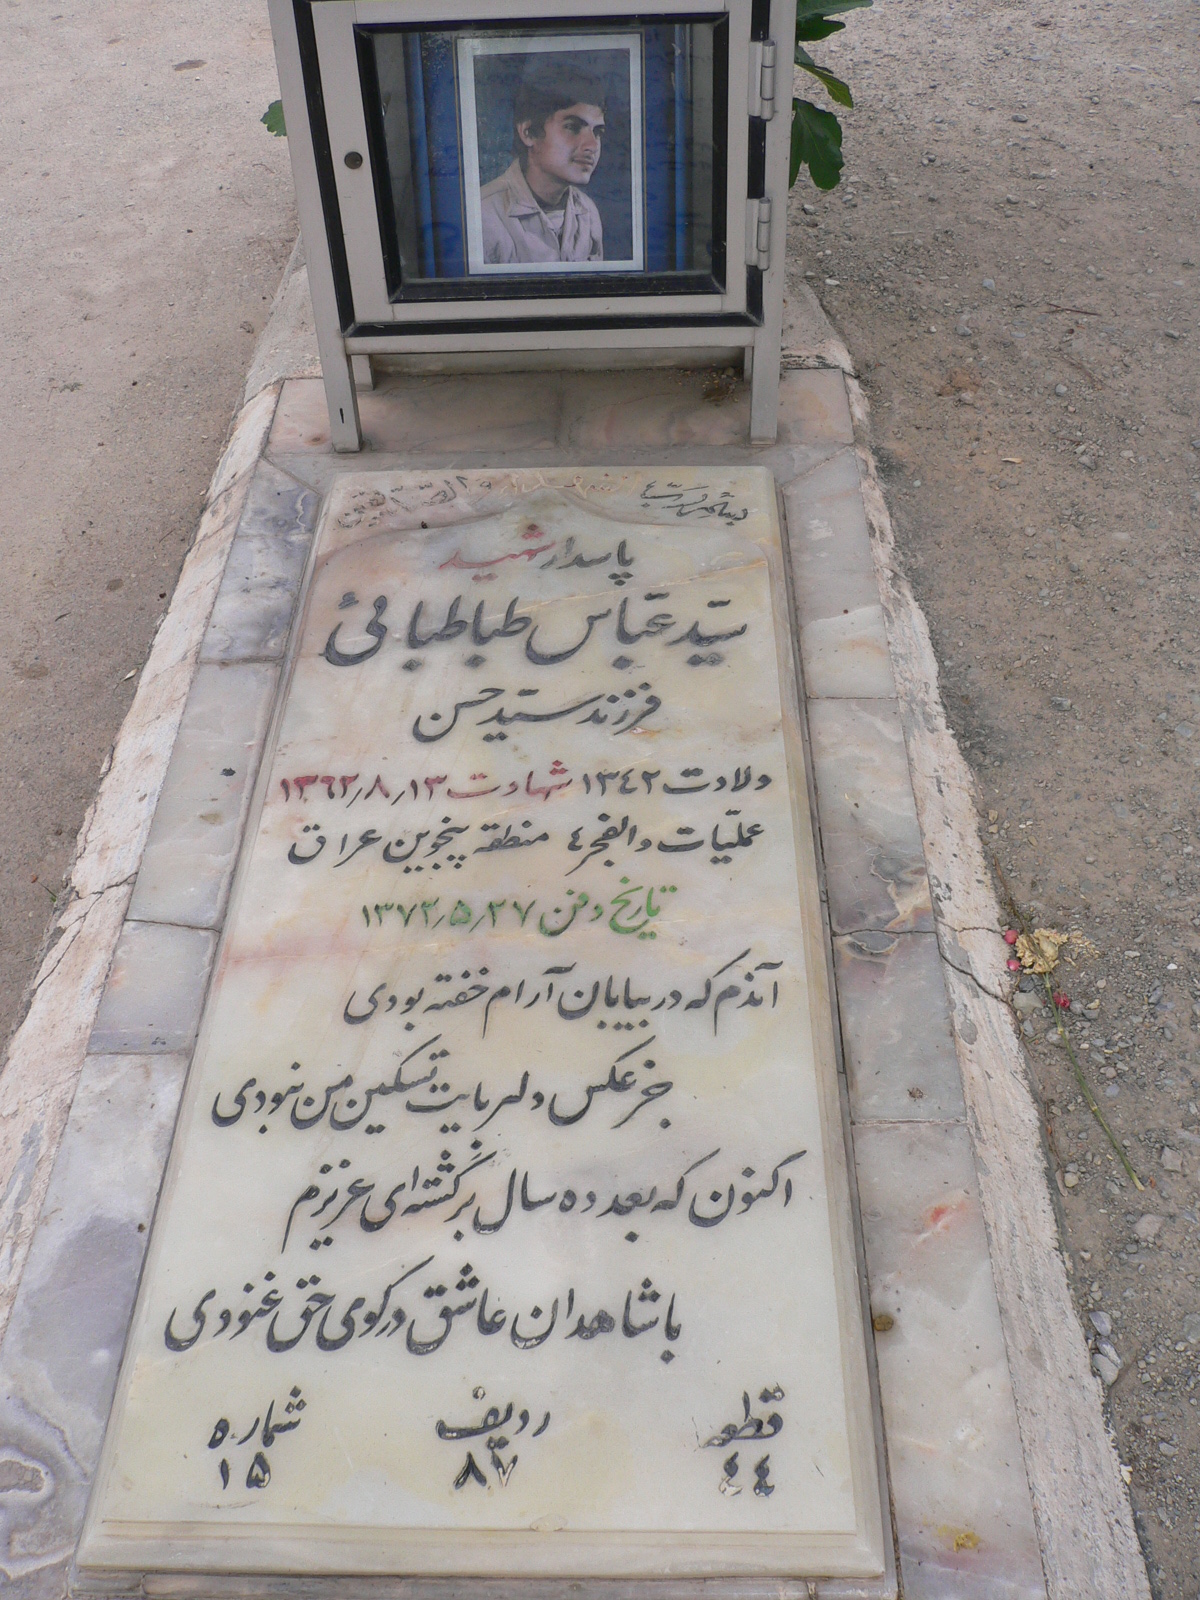 پاسدار شهید
سیّد عبّاس طباطبائی
فرزند سیّد حسن
ولادت ۱۳٤۲ شهادت ۱۳٫۸٫۱۳٦۲
عملیّات والفجر ٤ منطقه پنجوین عراق
تاریخ دفن ۲۷٫۵٫۱۳۷۳
آندم که در بیابان آرام خفته بودی
جز عکس دلربایت تسکین من نبودی
اکنون که بعد ده سال برگشته‌ای عزیزم
با شاهدان عاشق در کوی حق غنودی
قطعه ردیف شماره
٤٤ ۸۷ ۱۵